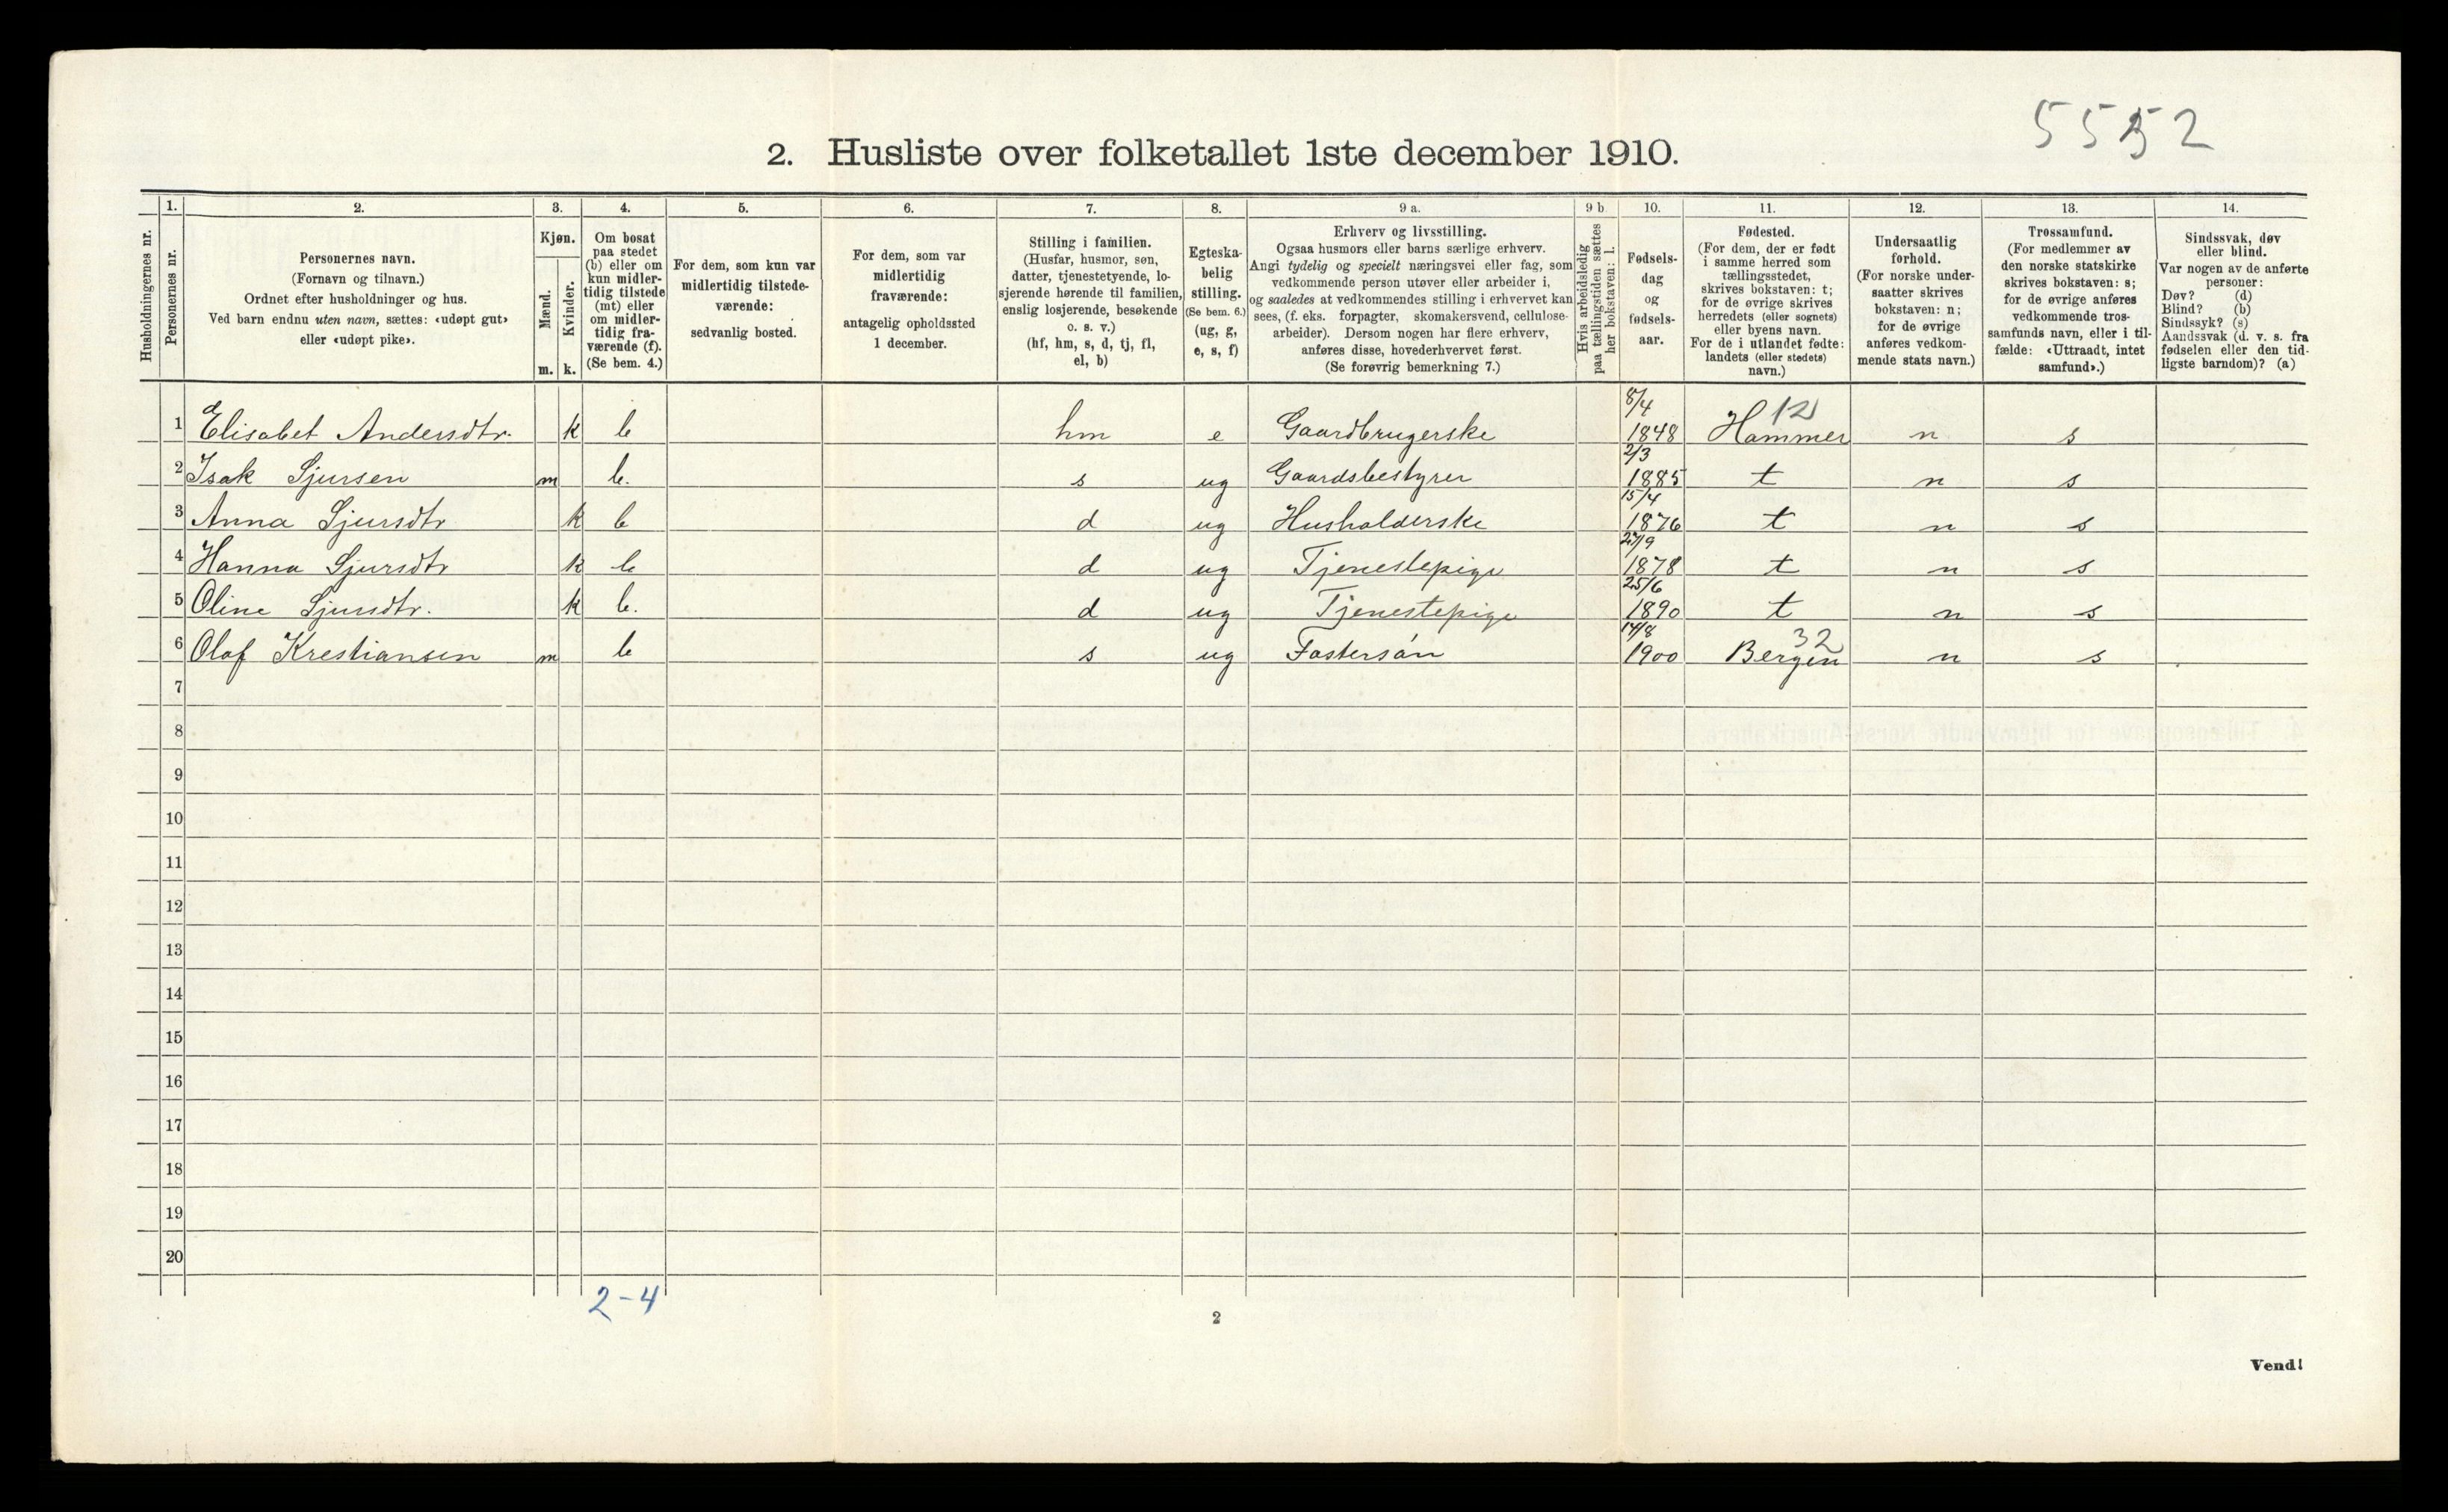 5552
2. Husliste over folketallet 1ste december 1910.
Husholdningernes nr.
1.
Personernes nr.
2.
Personernes navn.
(Fornavn og tilnavn.)
Ordnet efter husholdninger og hus.
Ved barn endnu uten navn, sættes: «udøpt gut»
eller «udøpt pike».
3.
Kjøn.
Mænd.
Kvinder.
m. k.
4.
Om bosat
paa stedet
(b) eller om
kun midler-
tidig tilstede
(mt) eller
om midler-
tidig fra-
værende (f).
(Se bem. 4.)
5.
For dem, som kun var
midlertidig tilstede-
værende:
sedvanlig bosted.
6.
For dem, som var
midlertidig
fraværende:
antagelig opholdssted
1 december.
7.
Stilling i familien.
(Husfar, husmor, søn,
datter, tjenestetyende, lo-
sjerende hørende til familien,
enslig losjerende, besøkende
o. s. v.)
(hf, hm, s, d, tj, fl,
el, b)
8.
Egteska-
belig
stilling.
(Se bem. 6.)
(ug, g,
e, s, f)
9 a.
Erhverv og livsstilling.
Ogsaa husmors eller barns særlige erhverv.
Angi tydelig og specielt næringsvei eller fag, som
vedkommende person utøver eller arbeider i,
og saaledes at vedkommendes stilling i erhvervet kan
sees, (f. eks. forpagter, skomakersvend, cellulose-
arbeider). Dersom nogen har flere erhverv,
anføres disse, hovederhvervet først.
(Se forøvrig bemerkning 7.)
9 b
Hvis arbeidsledig
paa tællingstiden sættes
her bokstaven: l.
10.
Fødsels-
dag
og
fødsels-
aar.
11.
Fødested.
(For dem, der er født
i samme herred som
tællingsstedet,
skrives bokstaven: t;
for de øvrige skrives
herredets (eller sognets)
eller byens navn.
For de i utlandet fødte:
landets (eller stedets)
navn.)
12.
Undersaatlig
forhold.
(For norske under-
saatter skrives
bokstaven: n;
for de øvrige
anføres vedkom-
mende stats navn.)
13.
Trossamfund.
(For medlemmer av
den norske statskirke
skrives bokstaven: s;
for de øvrige anføres
vedkommende tros-
samfunds navn, eller i til-
fælde: «Uttraadt, intet
samfund».)
14.
Sindssvak, døv
eller blind.
Var nogen av de anførte
personer:
Døv? (d)
Blind? (b)
Sindssyk? (s)
Aandssvak (d. v. s. fra
fødselen eller den tid-
ligste barndom)? (a)
8/4 12
1 Elisabet Andersdtr. k b hm e Gaardbrugerske 1848 Hammer n s
2/3
2 Isak Sjursen m b. s ug Gaardsbestyrer 1885 t n s
15/4
3 Anna Sjursdtr k b d ug Husholderske 1876 t n s
27/9
4 Hanna Sjursdtr k b d ug Tjenestepige 1878 t n s
25/6
5 Oline Sjursdtr. k b. d ug Tjenestepige 1890 t n s
14/8 32
6 Olaf Krestiansen m b s ug Fostersøn 1900 Bergen n s
7
8
9
10
11
12
13
14
15
16
17
18
19
20
2-4
2
Vend!